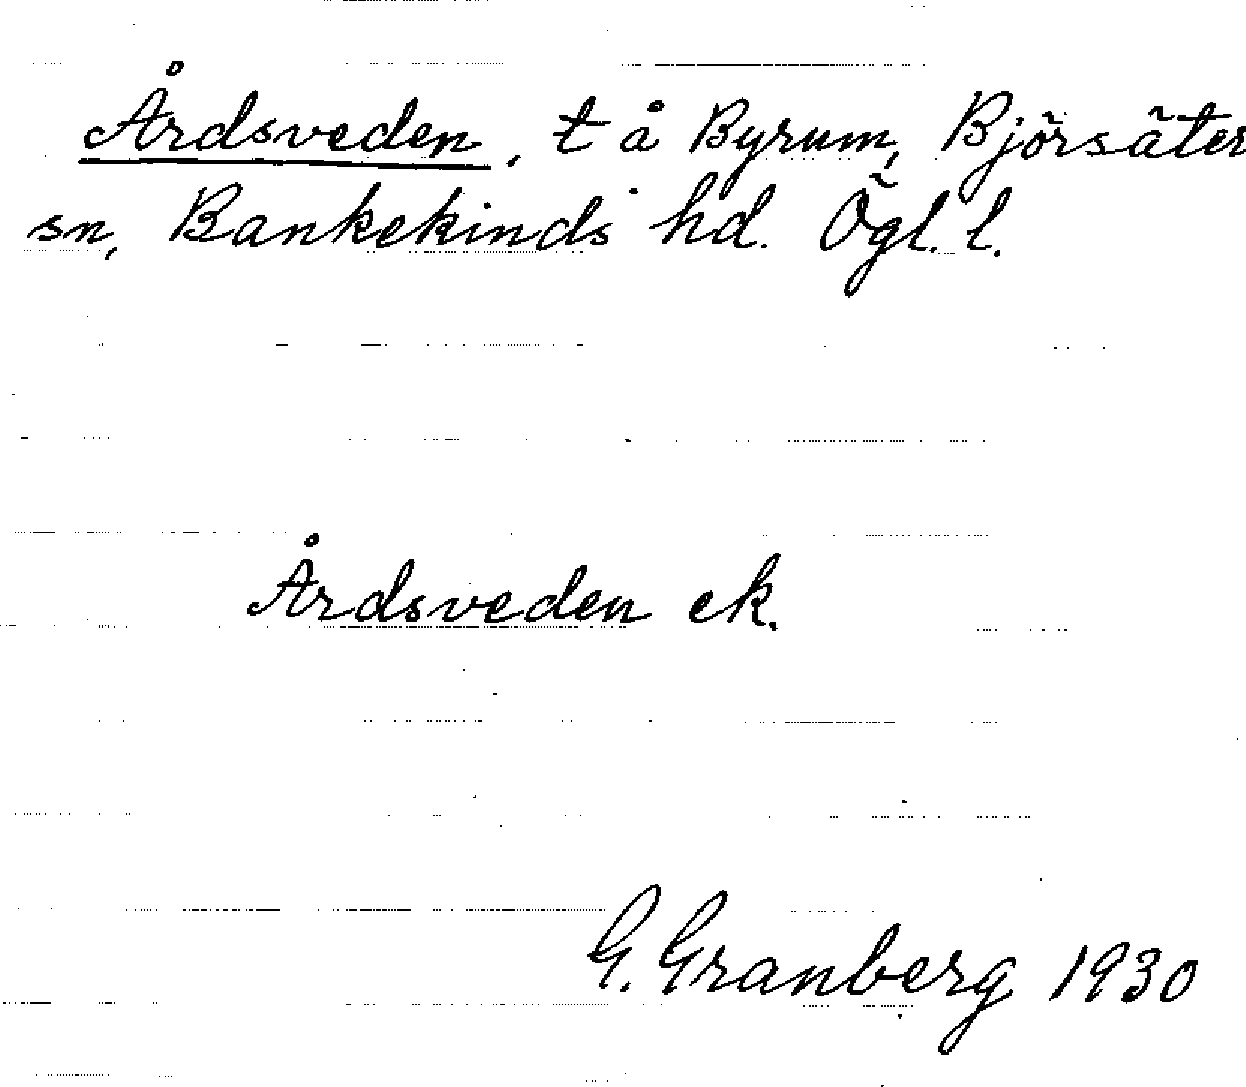 Årdsveden, t å Byrum, Björsäter
sn, Bankekinds hd. Ögl. l.
Årdsveden ek.
G. Granberg 1930